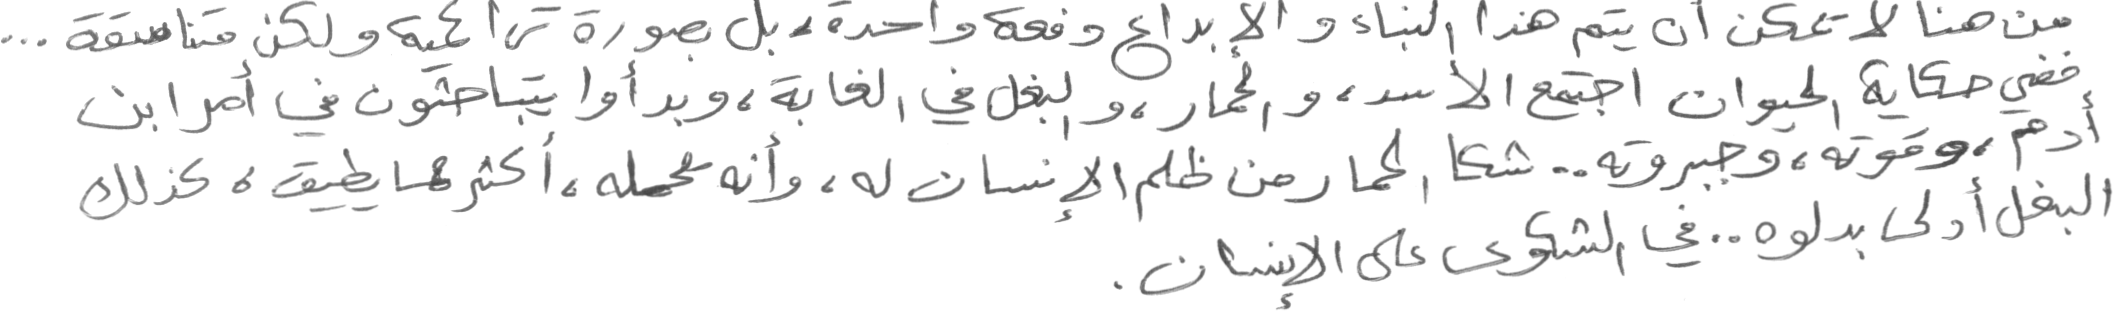 من هنا لا يمكن أن يتم هذا البناء والإبداع دفعة واحدة، بل بصورة تراكمية ولكن متناسقة ...
ففي حكاية الحيوان اجتمع الأسد، والحمار، والبغل في الغابة، وبدأوا يتباحثون في أمر ابن
أدم، وقوته، وجبروته .. شكا الحمار من ظلم الإنسان له، وأنه يحمله، أكثر مما يطيق، كذلك
البغل أدلى بدلوه .. في الشكوى على الإنسان.